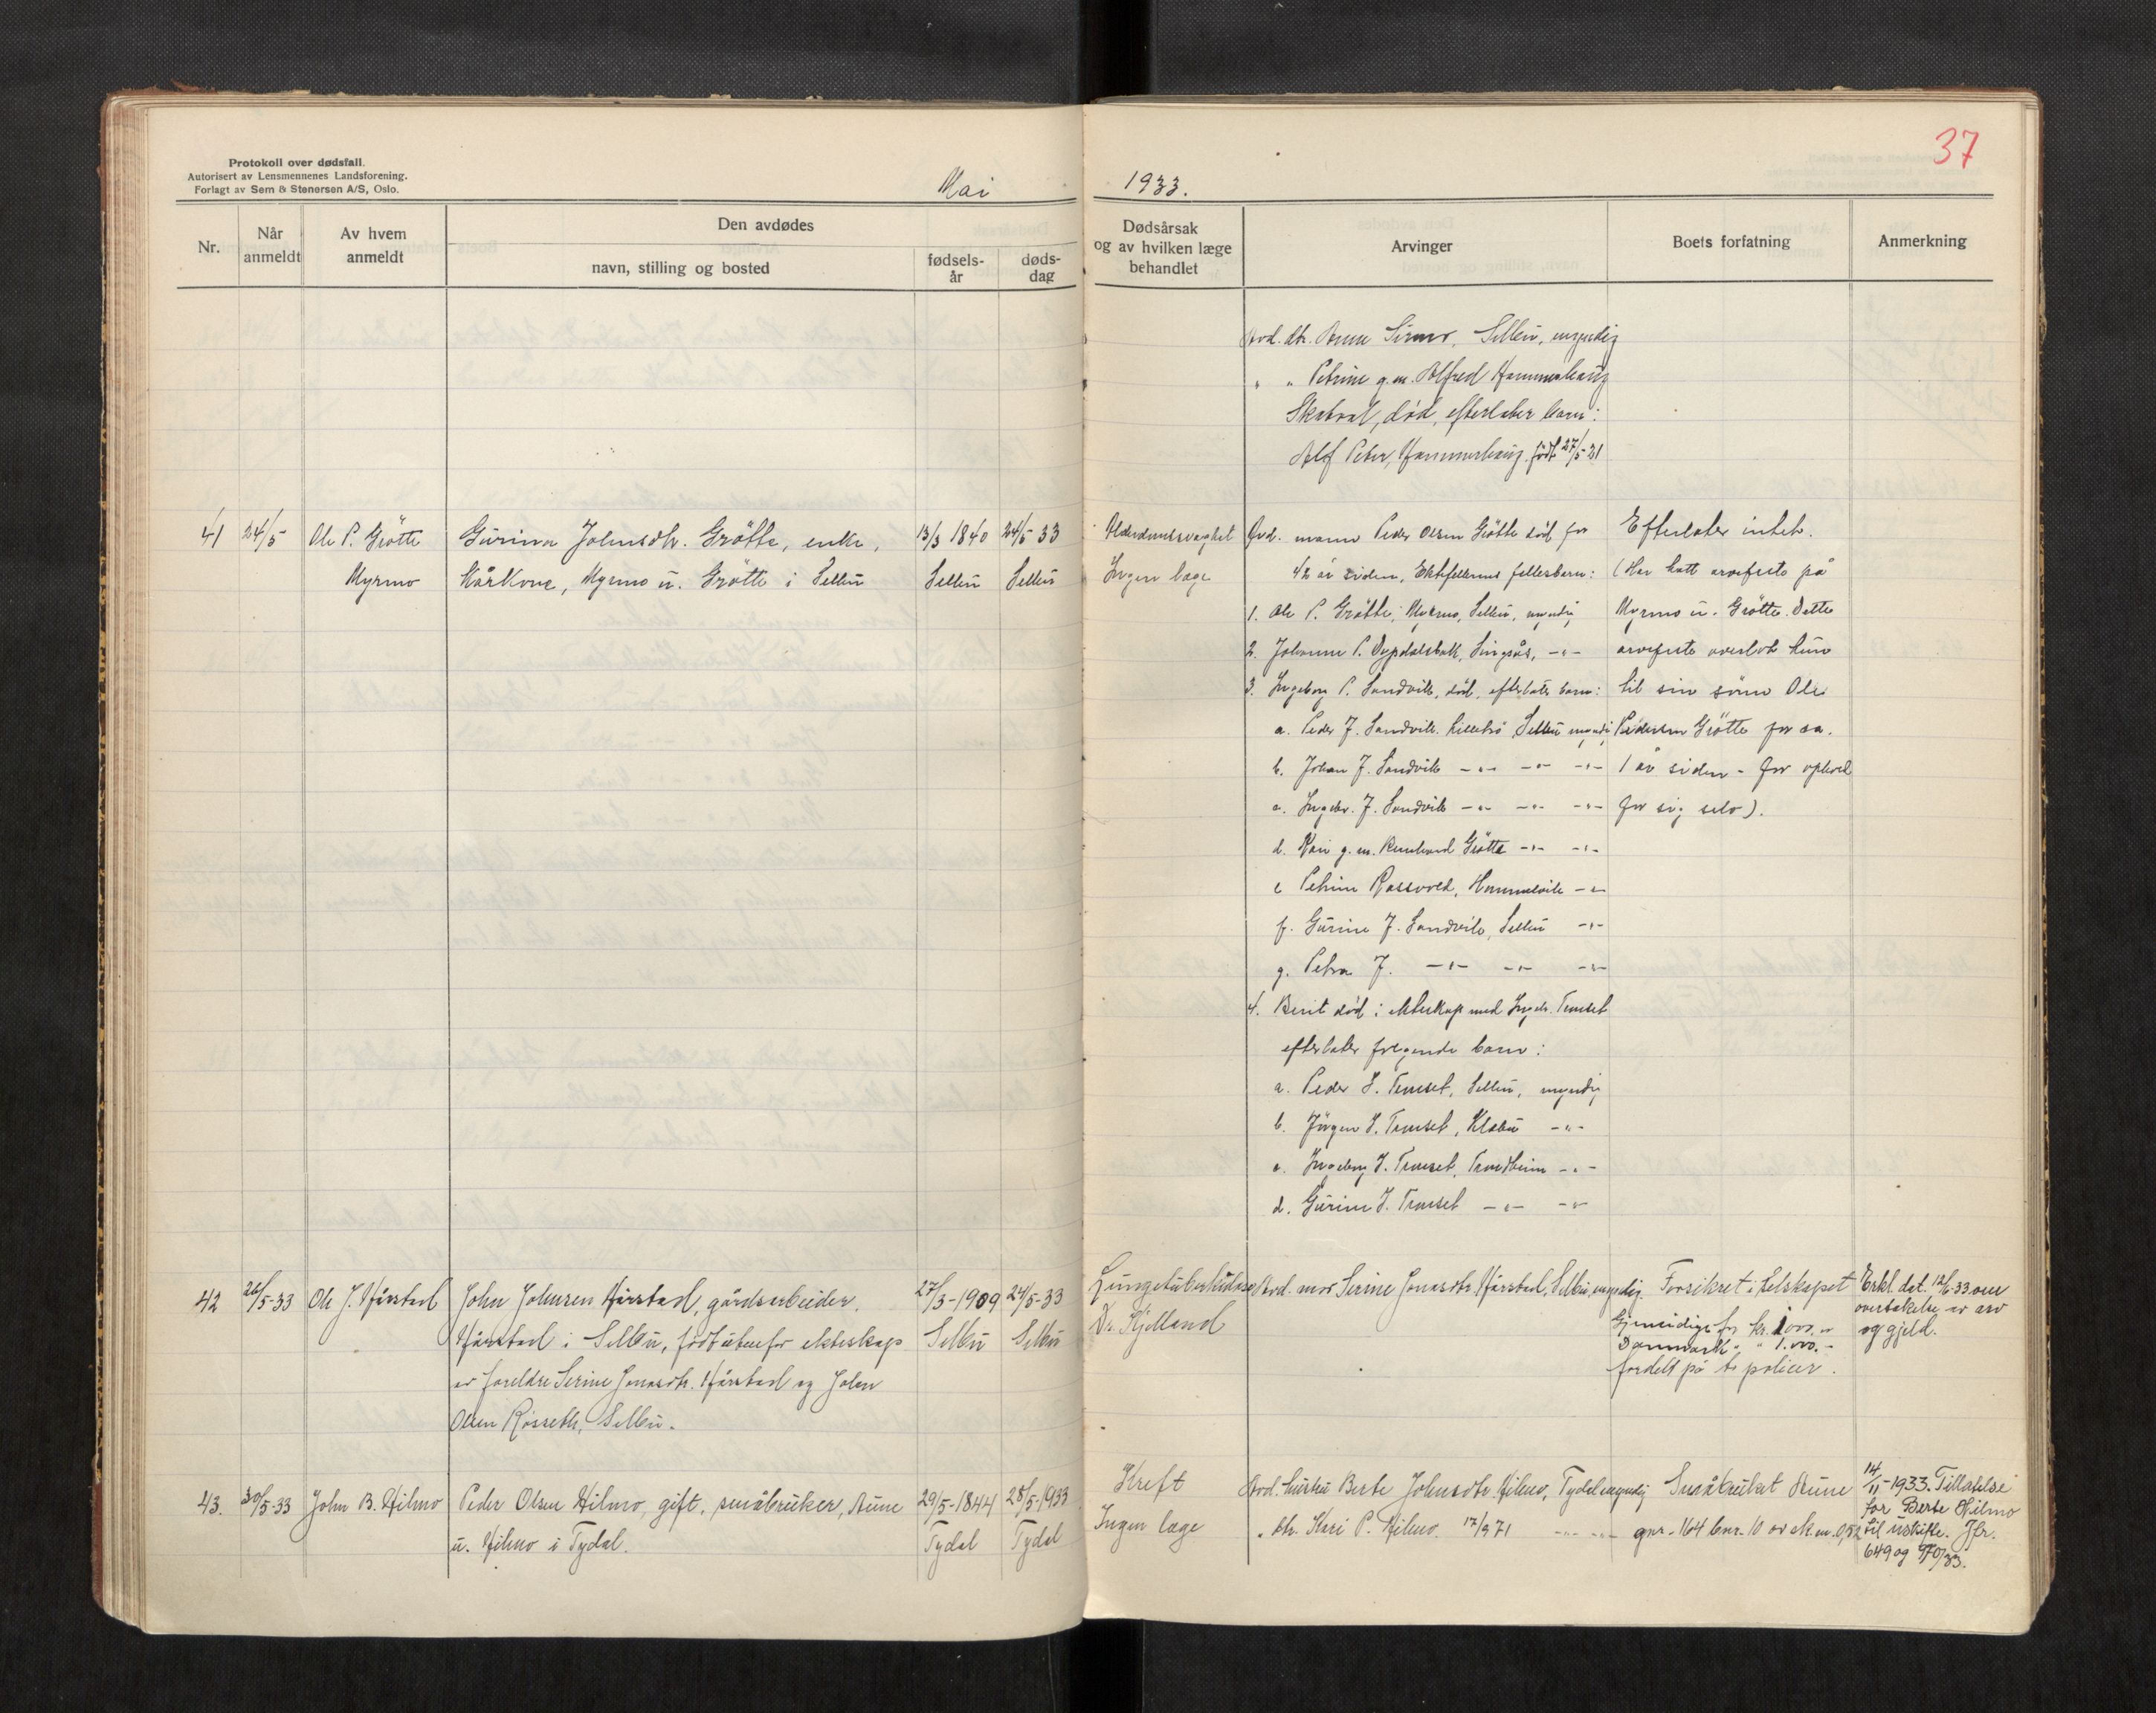 37
Protokoll over dødsfall.
Autorisert av Lensmennenes Landsforening.
Forlagt av Sem & Stenersen A/S, Oslo.
Mai 1933.
Nr.
Når anmeldt
Av hvem anmeldt
Den avdødes
navn, stilling og bosted
fødselsår
dødsdag
Dødsårsak og av hvilken læge behandlet
Arvinger
Boets forfatning
Anmerkning
Avd. dtr. Anne Sirmo, Selbu, myndig
" " Petrine g.m. Alfred Hammerhaug
Skatval, død, efterlater barn:
Alf Peter Hammerhaug født 27/5-21
41
24/5
Ole P. Grötte
Myrmo
Gurina Johnsdtr. Grötte, enke,
kårkone, Myrmo u. Grötte i Selbu
13/3 1840
Selbu
24/5 33
Selbu
Alderdomssvaghet
Ingen læge
Avd. mann Peder Olsen Grötte död for
42 år siden, Ektefellenes fellesbarn:
1. Ole P. Grötte, Myrmo, Selbu, myndig
2. Johanne P. Dypdalsbakk, Singsås, -"-
3. Ingeborg P. Sandvik, död, efterlater barn:
a. Peder J. Sandvik, Selbu myndig
b. Johan J. Sandvik -"- -"- -"-
c. Ingebr. J. Sandvik -"- -"- -"-
d. Kari g.m. Grötte -"- -"-
e Petrine Hommelvik -"-
f. Gurine J. Sandvik, Selbu -"-
g. Petra J. -"- -"- -"-
4. Berit död i ekteskap med Ingebr. Trøset
efterlater følgende barn:
a. Peder I. Trøset, Selbu, myndig
b. Jörgen I. Trøset, Klæbu -"-
c. Ingeborg I. Trøset, Trondheim -"-
d. Gurine I. Trøset -"- -"-
Efterlater intet.
(Har hatt arvefeste på
Myrmo u. Grötte. Dette
arvefeste overlot hun
til sin sönn Ole
Pedersen Grötte for ca.
1 år siden - for ophold
for sig selv).
42
26/5-33
Ole J. Hårstad
John Johnsen Hårstad, gårdsarbeider,
Hårstad i Selbu, født utenfor ekteskap
av foreldre Serine Jonasdtr. Hårstad og John
Olsen Rösseth, Selbu.
27/3-1909
Selbu
24/5-33
Selbu
Lungetuberkulose
Dr. Kjelland
Avd. mor Serine Jonasdtr. Hårstad, Selbu, myndig.
Forsikret i selskapet
Gjensidige for kr. 1000.-
Danmark " " 1.000.-
fordelt på to policer.
Erkl. dat. 12/6-33 om
overtakelse av arv
og gjeld.
43.
30/5-33
John B. Hilmo
Peder Olsen Hilmo, gift, småbruker, Aune
u. Hilmo i Tydal.
29/5-1844
Tydal
28/5-1933
Tydal
Kreft
Ingen læge
Avd. hustru Berte Johnsdtr. Hilmo, Tydal myndig
" dtr. Kari P. Hilmo. 17/9 71 -"- -"-
Småbruket Aune
gnr. 164 bnr. 10 av sk.m. 0,52
14/11-1933. Tillatelse
for Berte Hilmo
til uskifte. Jfr.
649 og 970/33.